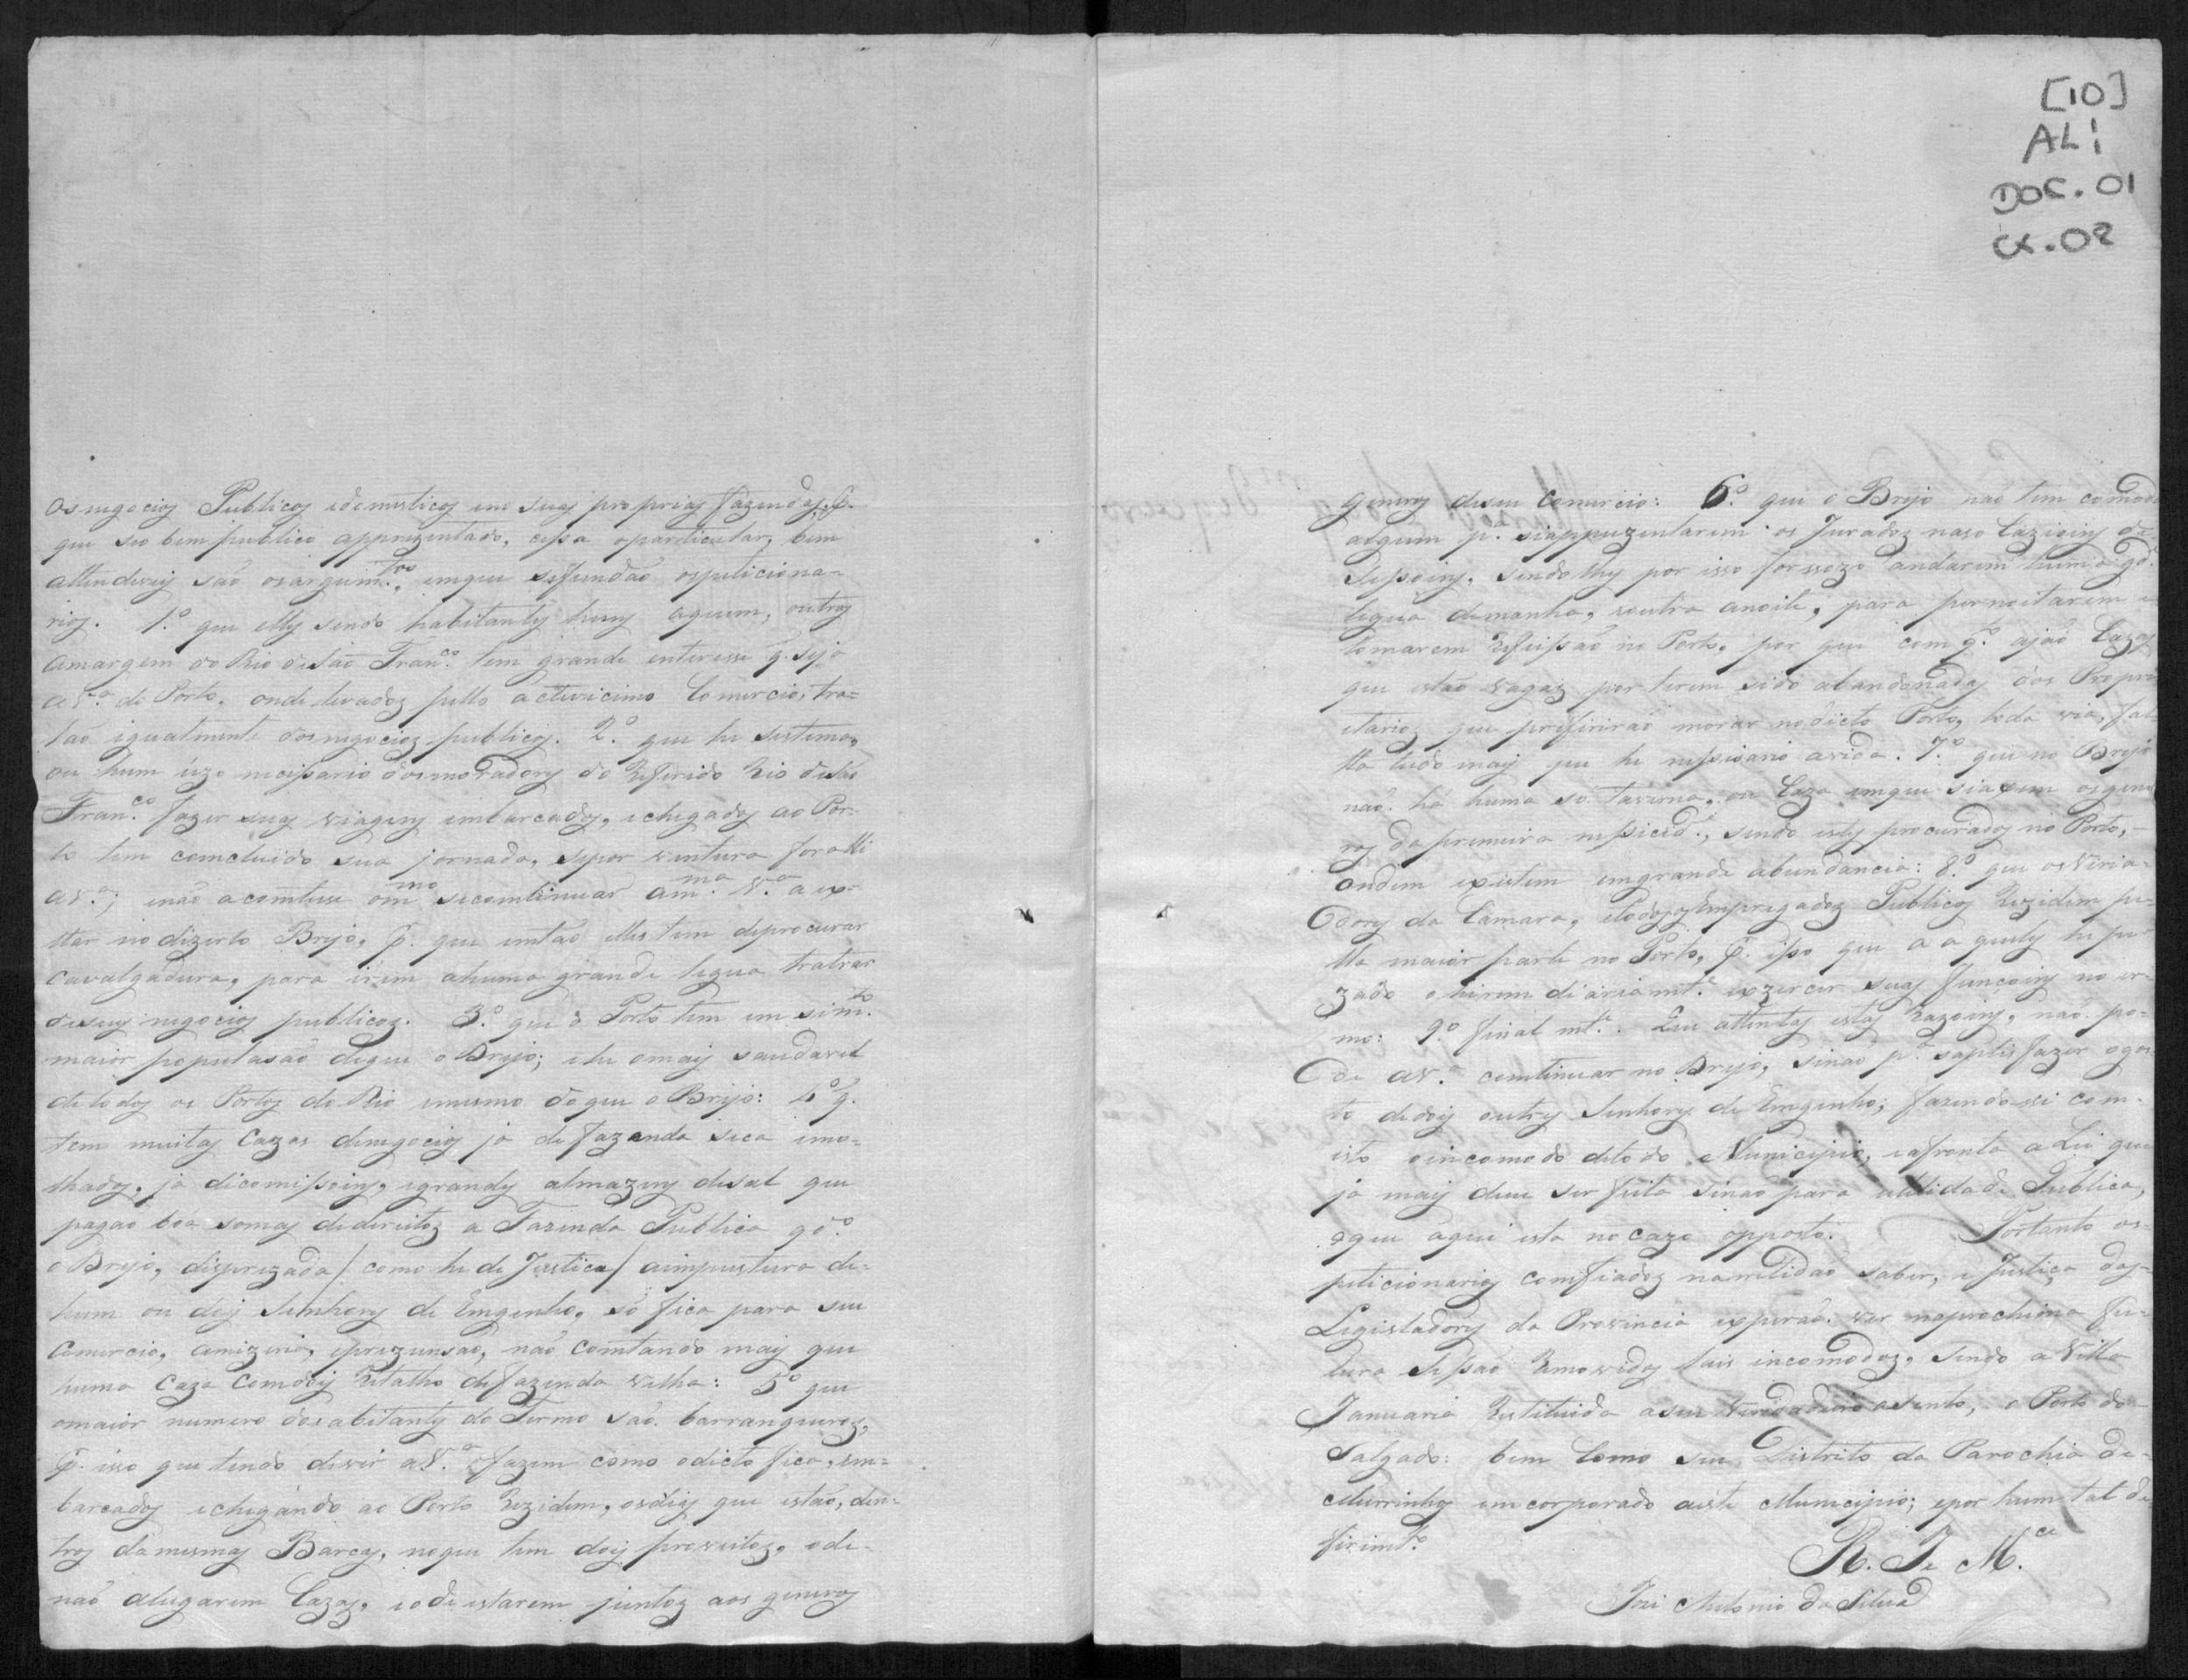 os negocios Publicos e domesticos em suas proprias fazendas, p.
que so bem publico apprezentado, cessa o particular, bem
attendiveis são os argum.tos em que se fundão os peticiona-
rios. 1.º que elles sendo habitantes huns aquem, outros
amargem do Rio de São Fran.co tem grande enteresse q. seja
a V.a do Porto, onde levados pello activicimo Comercio, tra=
tão igualmente dos negocios publicos. 2.º que he sistema,
ou hum úzo necissario dos moradores do Referido Rio de São
Fran.co fazer suas viagens embarcados, e chegados ao Por-
to tem comcluido sua jornada, se por ventura for alli
a V.a; e não acomtece o m.mo se comtinuar a m.ma V.a a ex-
star no dizerto Brejo, p. que emtão elles tem de procurar
cavalgadura, para irem a huma grande legua tratrar
de seus negocios publicos. 3.º que o Porto tem em si m.to
maior populasão de que o Brejo; e he o mais saudavel
de todos os Portos do Rio e mesmo do que o Brejo: 4.º q.
tem muitas Cazas de negocios ja de fazenda seca e mo-
lhados, ja de comissoins, e grandes almazens de sal que
pagão bôa somas de direitos a Fazenda Publica q.do
o Brejo, disprezada / como he de Justica / a impustura de=
hum ou dois Senhores de Emgenho, só fica para seu
Comercio, amizena, e prezunsão, não comtando mais que
huma Caza com dois Retalhos de fazenda velha: 5.º que
o maior numero dos abitantes do Termo são barranqueiros,
p. isso que tendo de vir a V.a fazem como o dicto fica, em=
barcados e chegando ao Porto Rezidem, os dias que estão, den-
tros da mesmas Barcas, no que tem dois proveitos, o de
não alugarem Cazas, e o de estarem juntos aos generos
[10]
AL1
DOC. 01
CX. 02
generos de seu Comercio: 6.º que o Brejo não tem comodo
algum p.a si appuzentarem os Jurados nas occazioins de
Sessoins, sendo lhes por isso forssozo andarem huma gd.e
legua de manha, e outra a noite, para pernoitarem e
tomarem Refeissão no Porto, por que com q.to ajão Cazas
que estão vagas por terem sido abandonadas dos Propri
etarios que prifirirão morar no dicto Porto, toda via, fal
ta tudo mais que he nessisario a vida. 7.º que no Brejo
não há huma só taverna, ou Caza em que si axem os gene
ros da primeira nessicid.e, sendo estes procurados no Porto,
ondem existem em grande abundancia: 8.º que os Veria-
dores da Camara, e todos os Empregados Publicos Rezidem pe-
lla maior parte no Porto, p. isso que a aquelles he pe-
zado o hirem diariam.te exzercer suas funçoins no er-
mo: 9.º final m.te. Que attentas estas Razoins, não po-
de a V.a comtinuar no Brejo, sinão p.a saptisfazer o gos
to de dois outres Senhores de Emgenho, fazendo-ssi com
isto o incomodo de todo o Municipio, e afronta a Lei que
ja mais deve ser feita sinão para utilidade Publica,
o que aqui esta no cazo opposto. Portanto os
peticionarios comfiados na retidão saber, e Justiça dos
Legisladores da Provincia esperão ver na prochima fu-
tura Sessão Removidos tais incomodos, sendo a Villa
Januaria Restituida a seu verdadeiro asento, o Porto do
Salgado: bem Como seu Distrito da Parochia de
Morrinhos emcorporado a este Municipio; e por hum tal de
firim.to
R. J. M.ce
José Antonio da Silva